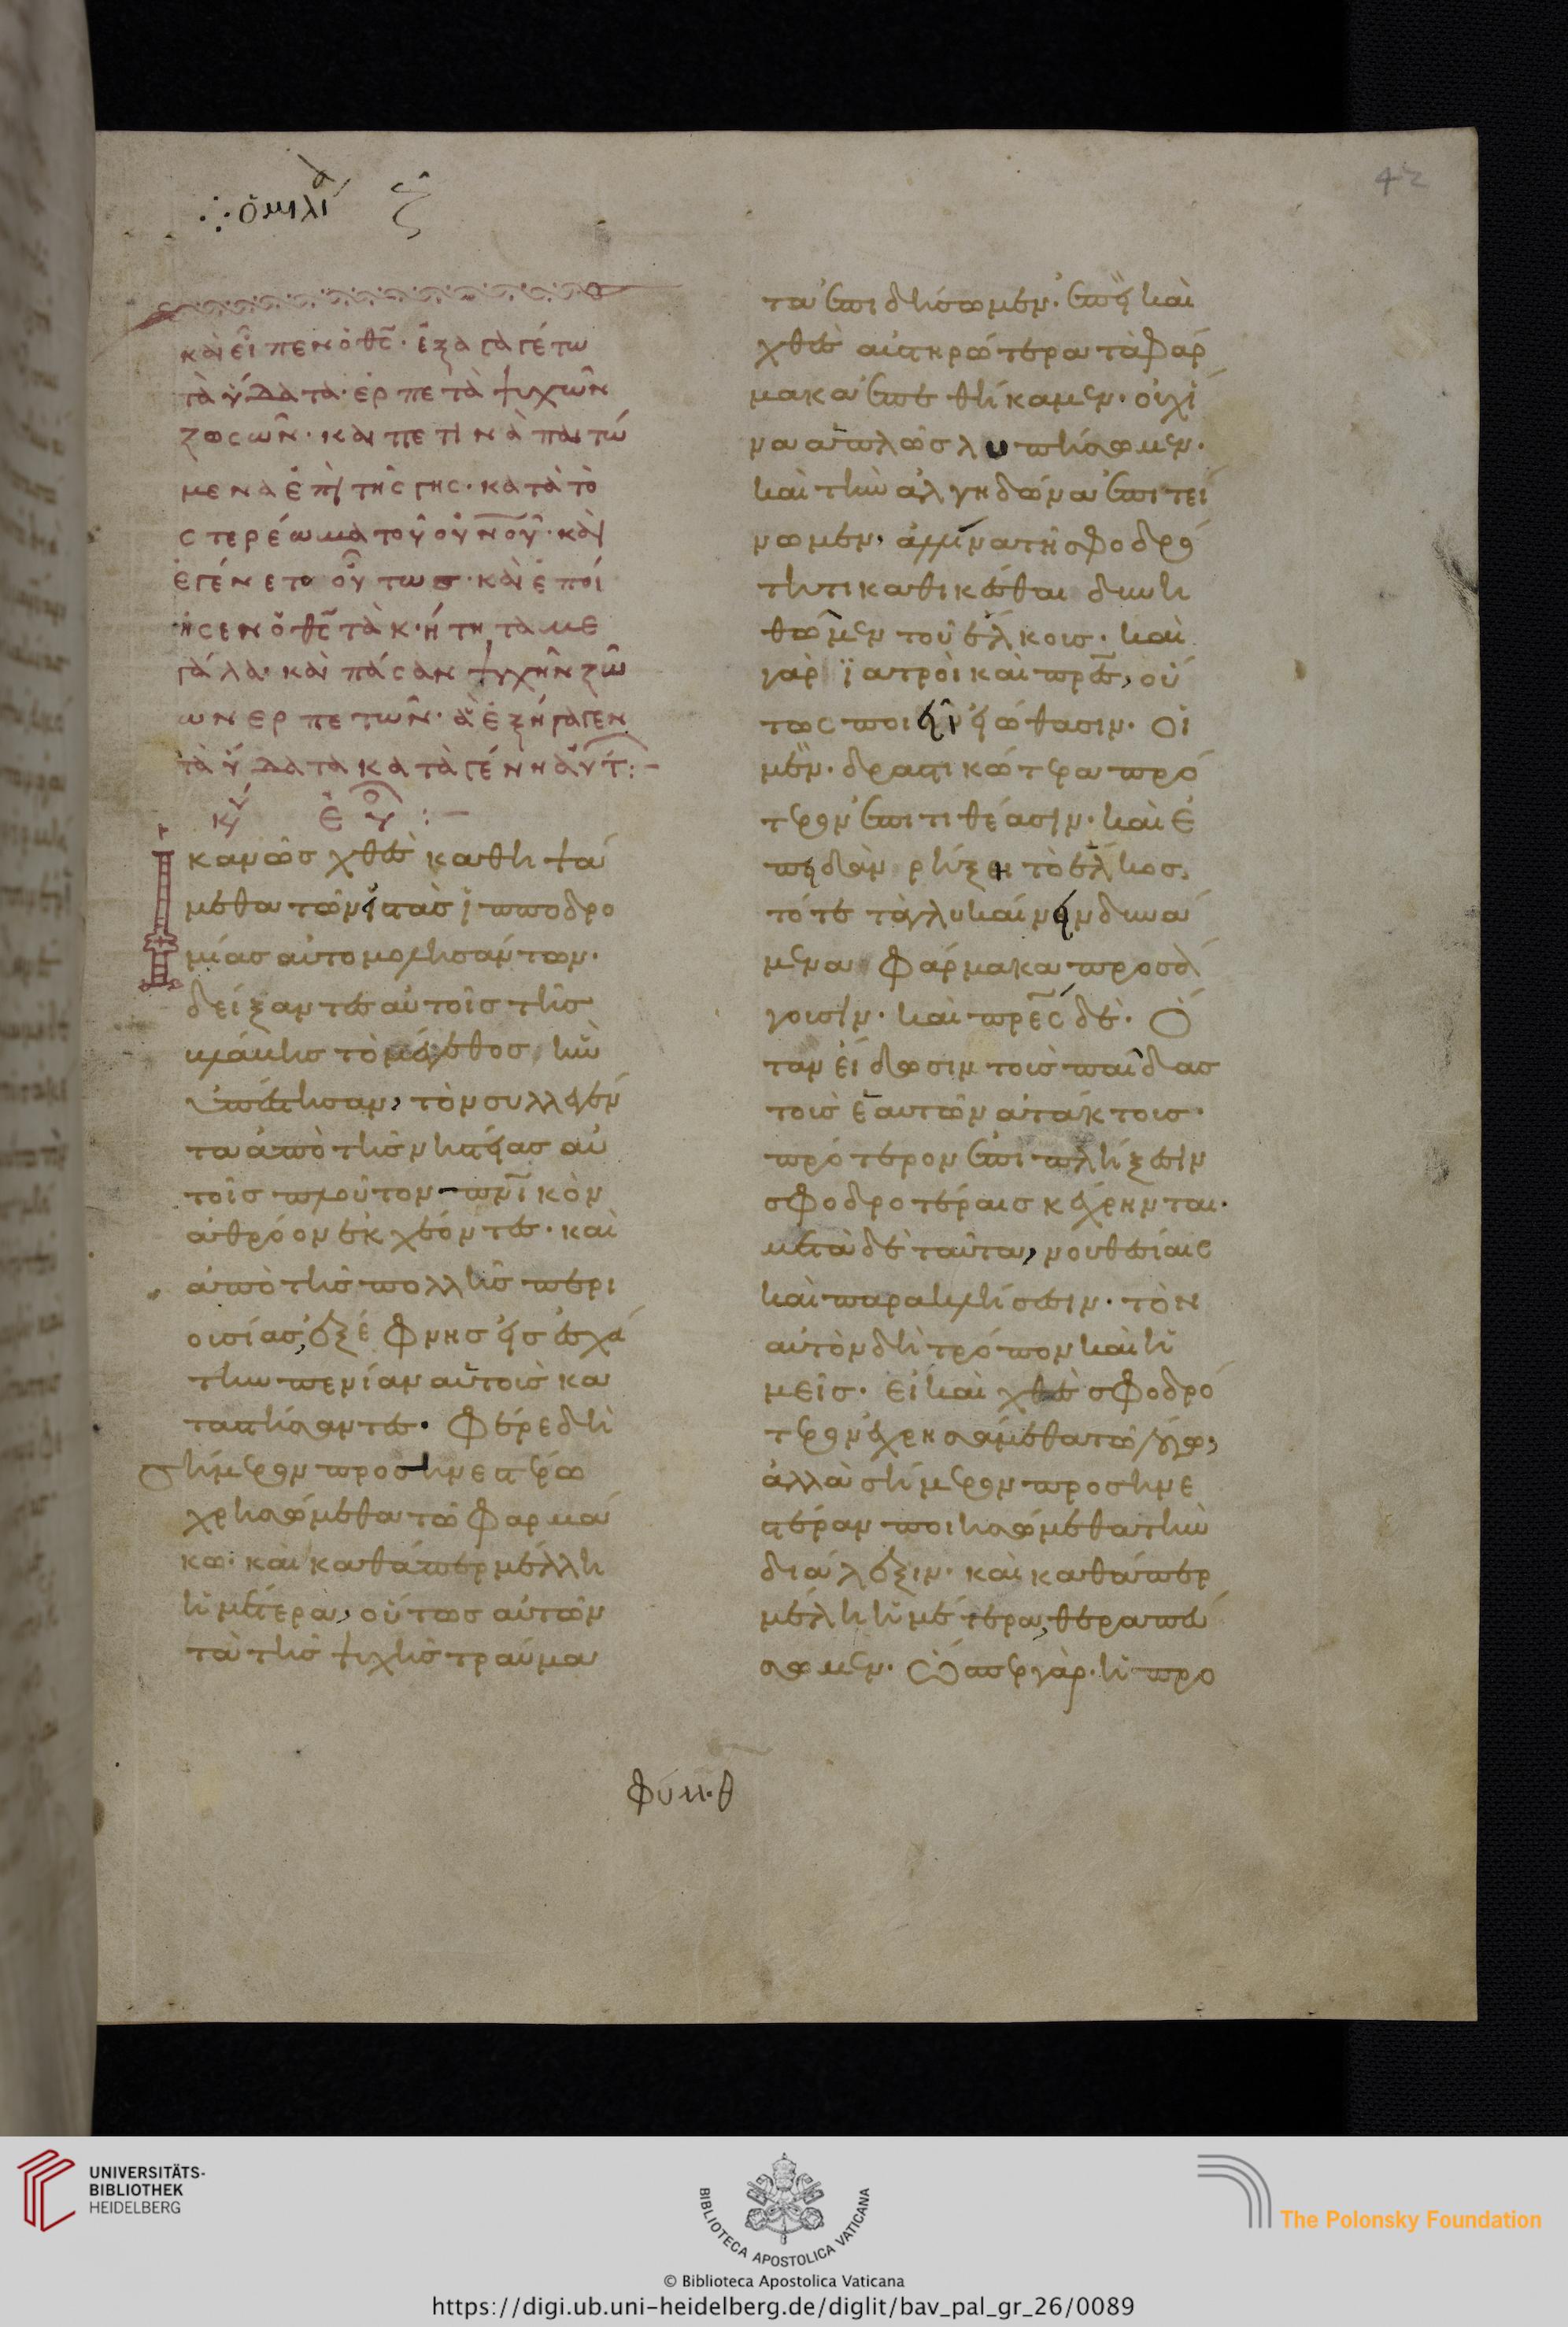 ∴ ὁμιλί^α ζ
42
καὶ εἶπεν ὁ θς̅· ἐξαγαγέτω
τὰ ὕδατα· ἑρπετὰ ψυχῶν
ζοσῶν· καὶ πετινὰ παιτώ
μενα ἐπὶ τῆς γῆς· κατὰ τὸ
στερέωμα τοῦ οὐνοῦ· καὶ
ἐγένετο οὕτως· καὶ ἐποί
ησεν ὁ θς̅ τὰ κήτη τὰ με
γάλα· καὶ πάσαν ψυχὴν ζώ
ων ερπετῶν· ἃ ἐξήγαγεν
τὰ ὕδατα κατὰ γένη αὐτ:–
Ἱκανῶς χθὲς καθηψά
μεθα τῶν εἰς τὰς ἱπποδρο
μίας αὐτομολησάντων·
δείξαντες αὐτοῖς τῆς
βλάβης τὸ μέγεθος, ἣν
ὑπέστησαν, τὸν συλλεγέν
τα ἀπὸ τῆς νηστείας αὐ
τοῖς πλοῦτον πνι̅κὸν
ἀθρόον ἐκχέοντες· καὶ
ἀπὸ τῆς πολλῆς περι
ουσίας, ἐξέφνης εἰς ἐσχά
την πενίαν αὑτοὺς κα
ταστήσαντες· Φέρε δὴ
σήμερον προσηνεστέρω
χρησώμεθα τῶ φαρμά
κω· καὶ καθάπερ μέλλη
ἡμέτερα, οὕτως αὐτῶν
τὰ τῆς ψυχῆς τραύμα
τα ἐπιδήσωμεν· ἐπεὶ καὶ
χθὲς αὐστηρώτερα τὰ φάρ
μακα ἐπεθήκαμεν· οὐχί
να ἁπλῶς λυπήσωμεν·
καὶ τὴν ἀλγηδώνα ἐπιτεί
νωμεν, ἀλλ' ἵνα τῆ σφοδρό
τητι καθικέσθαι δυνη
θῶμεν τοῦ ἕλκους· καὶ
γὰρ ϊατροὶ καὶ πρες̅, οὕ
τως ποιεῖν εἰώθασιν· Οἱ
μὲν· δραστικώτερα πρό
τερον ἐπιτιθέασιν· καὶ ἐ
πειδὰν ρήξει τὸ ἕλκος,
τότε τὰ γλυκαίνειν δυνά
μενα φάρμακα προσά
γουσιν· καὶ πρες̅ δὲ· Ὅ
ταν εἴδωσιν τοὺς παῖδας
τοὺς ἑαυτῶν ἀτάκτους·
πρότερον ἐπιπλήξεσιν
σφοδροτέραις κέχρηνται·
μετὰ δὲ ταῦτα, νουθεσίαις
καὶ παρακλήσεσιν· τὸν
αὐτὸν δὴ τρόπον καὶ ἡ
μεῖς· εἰ καὶ χθὲς σφοδρό
τερον ἐχρησάμεθα τῶ λόγω,
ἀλλὰ σήμερον προσηνε
στέραν ποιησώμεθα τὴν
διάλεξιν· καὶ καθάπερ
μέλη ἡμέτερα, θεραπεύ
σωμεν· Ὥσπερ γὰρ· ἡ προ
UNIVERSITÄTS-
BIBLIOTHEK
HEIDELBERG
BIBLIOTECA APOSTOLICA VATICANA
The Polonsky Foundation
© Biblioteca Apostolica Vaticana
https://digi.ub.uni-heidelberg.de/diglit/bav_pal_gr_26/0089